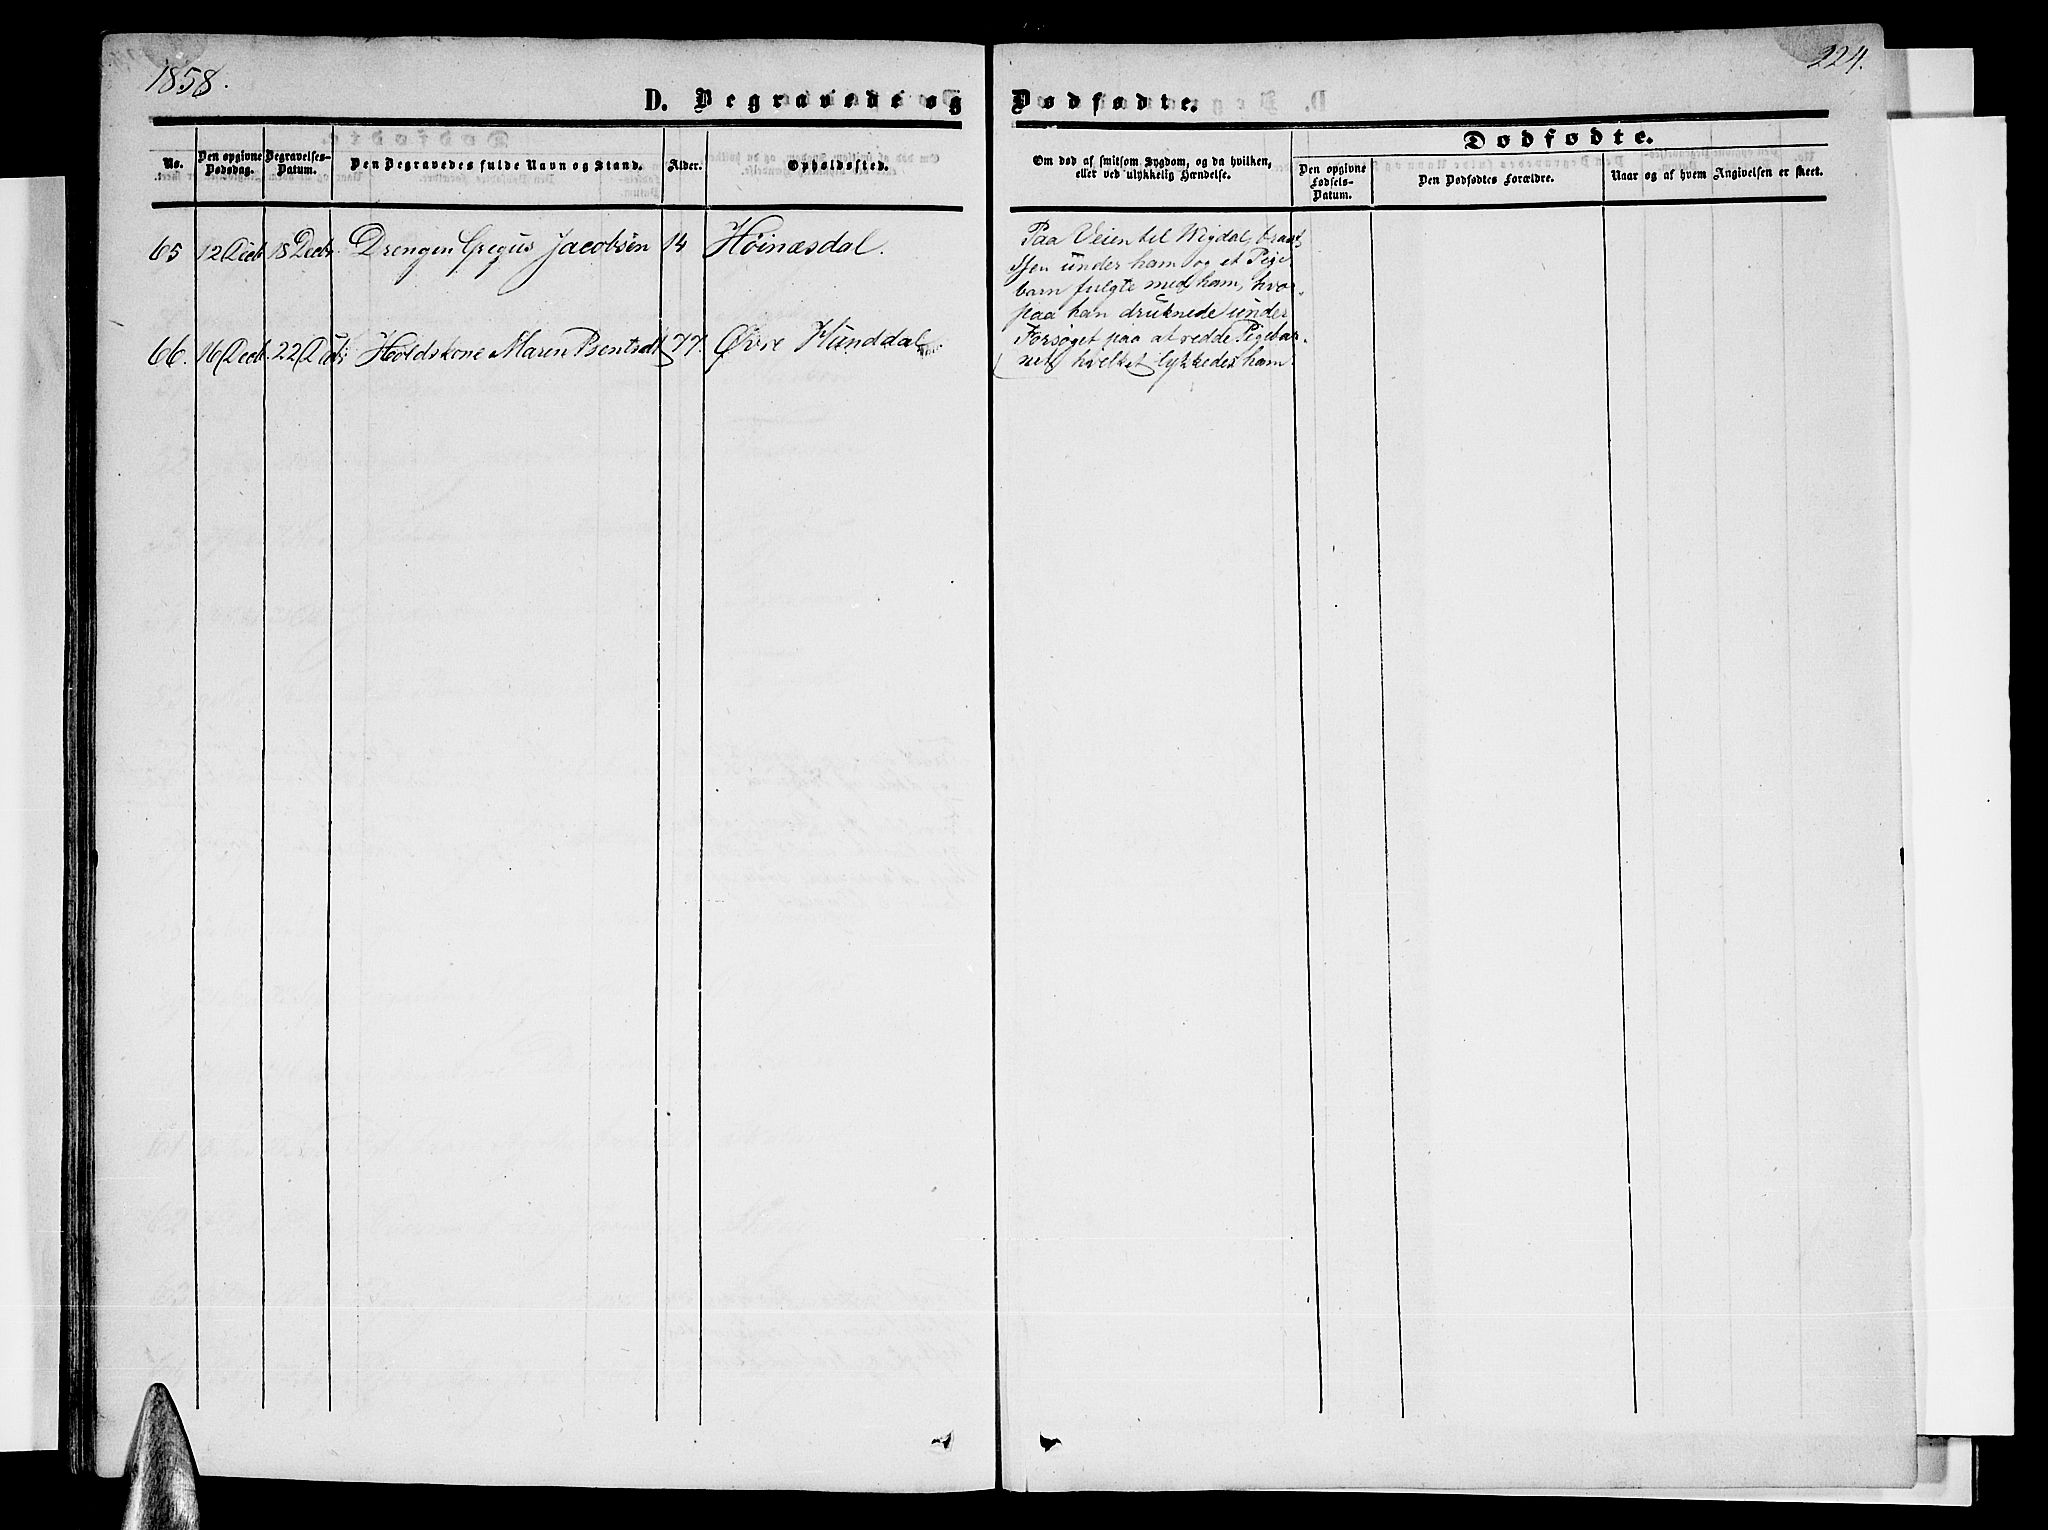 1858.
224.
D. Begravede og Dødfødte.
Dødfødte.
No.
Den opgivne Dødsdag.
Begravelses-Datum.
Den Begravedes fulde Navn og Stand.
Alder.
Opholdssted.
Om død af smitsom Sygdom, og da hvilken,
eller ved ulykkelig Hændelse.
Den opgivne
Fødsels-
Datum.
Den Dødfødtes Forældre.
Naar og af hvem Angivelsen er skeet.
65 12 Decb 18 Decbr. Drengen Gregus Jacobsen 14 Høinæsdal.
Paa Veien til Wigdal, brast
Isen under ham og et Pige
barn fulgte med ham, hvor-
paa han druknede under
Forsøget paa at redde Pigebar-
net, hvilket lykkedes ham.
66. 16 Decb. 22 Maren 77. Øvre Hunddal